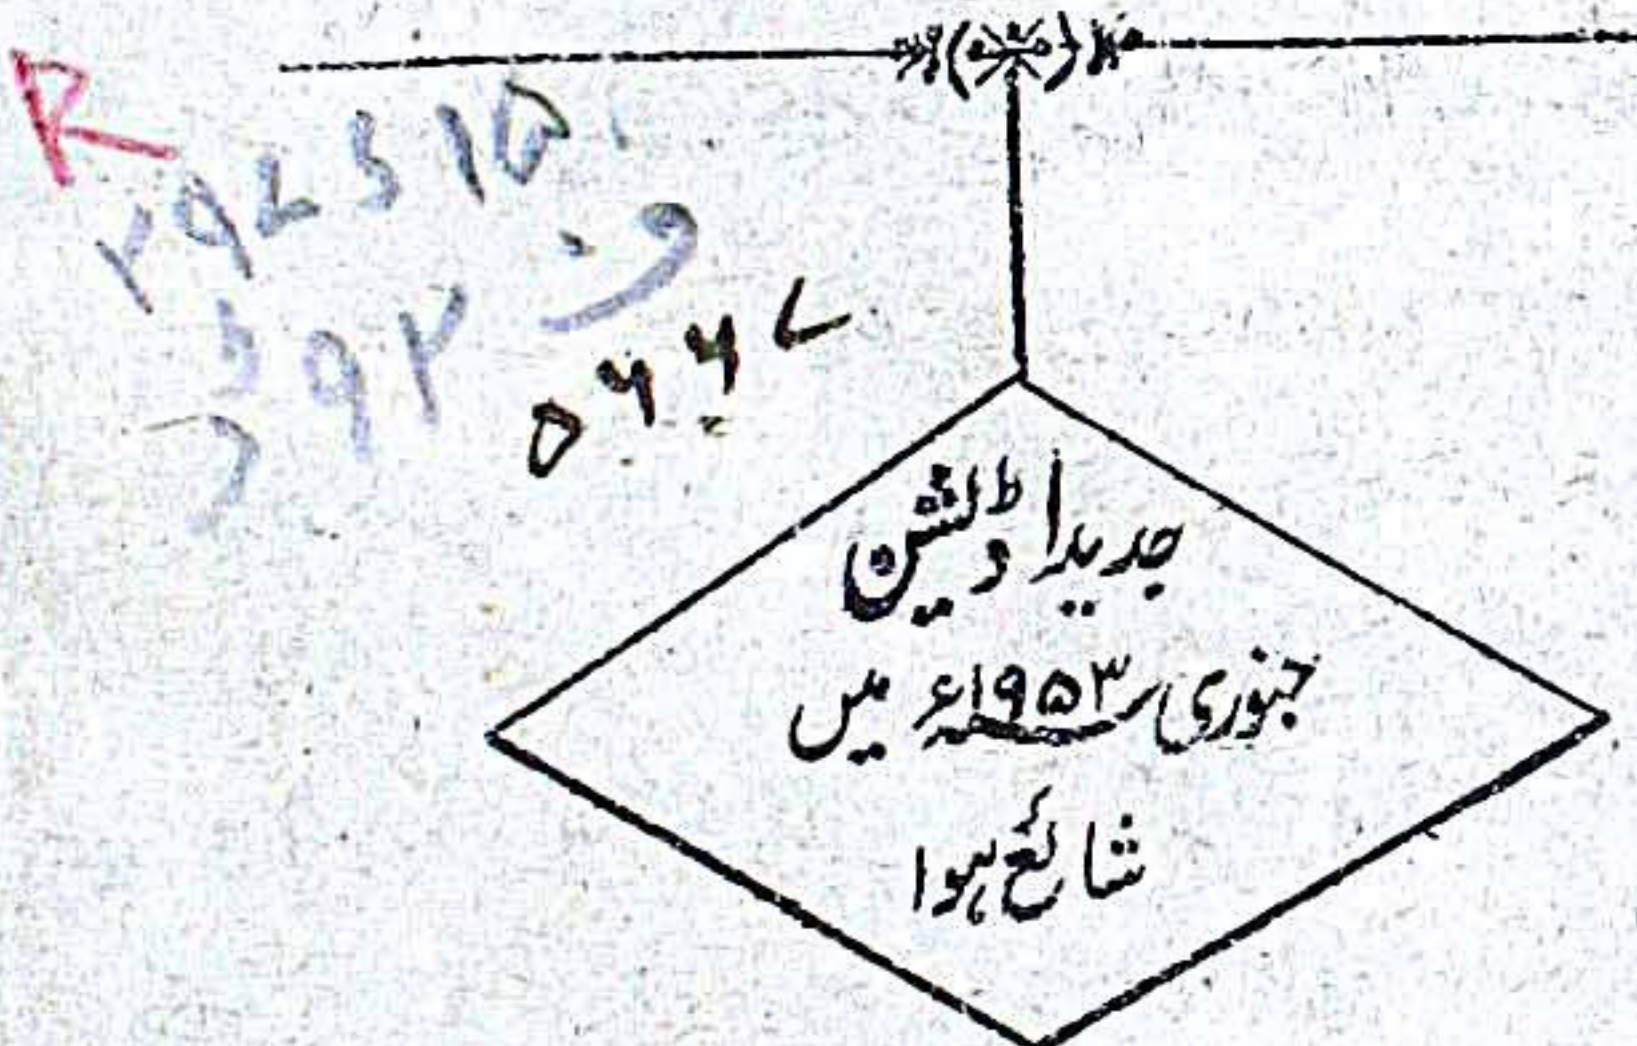 R
۲۹۷۶۱۵
ف
۵۶۶۷
جدید اڈیشن
جنوری ۱۹۵۳ء میں
شائع ہوا